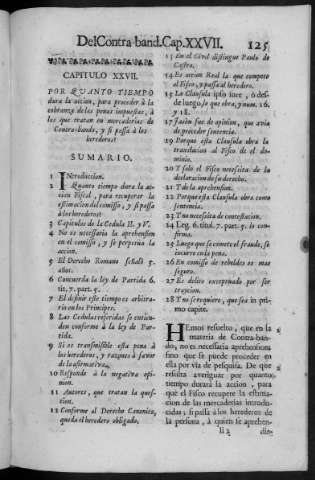 Del Contra-band. Cap. XXVII.
125
CAPITULO XXVII.
POR QUANTO TIEMPO
dura la accion, para proceder à la
cobrança de las penas impuestas, à
los que tratan en mercaderias de
Contra-bando, y si passa à los
herederos?
SUMARIO.
1 Introduccion.
2 Quanto tiempo dura la ac-
cion Fiscal, para recuperar la
estimacion del comisso, y si passa
à los herederos?
3 Capitulos de la Cedula II. y V.
4 No es necessaria la aprehension
en el comisso, y se perpetua la
accion.
5 El Derecho Romano señalò 5.
años.
6 Concuerda la ley de Partida 6.
tit. 7. part. 5.
7 El definir este tiempo es arbitra-
rio en los Principes.
8 Las Cedulas referidas se entien-
den conforme à la ley de Par-
tida.
9 Si es transmisible esta pena à
los herederos, y razones à favor
de la afirmativa.
10 Responde à la negativa opi-
nion.
11 Autores, que tratan la ques-
tion.
12 Conforme al Derecho Canonico,
queda el heredero obligado.
13 En el Civil distingue Paulo de
Castro.
14 Es accion Real la que compete
al Fisco, y passa al heredero.
15 La Clausula ipso iure, ò des-
de luego, se que obra, y num. 16.
y 18.
17 Jason fue de opinion, que avia
de proceder sentencia.
19 Porque esta Clausula obra la
translacion al Fisco de el do-
minio.
20 Y solo el Fisco necessita de la
declaracion de su derecho.
21 Y de la aprehension.
22 Porque esta Clausula obra como
sentencia.
23 Y no necessita de contestacion.
24 Leg. 6. titul. 7. part. 5. se con-
firma.
25 Luego que se comete el fraude, se
incurre en la pena.
26 En comisso de rebeldes es mas
seguro.
27 Es delito exceptuado por ser
traycion.
28 Y no se requiere, que sea in pri-
mo capite.
HEmos resuelto, que en la
materia de Contra-ban-
do, no es necessaria aprehension
sino que se puede proceder en
ella por via de pesquisa. De que
resulta averiguar por quanto
tiempo durarà la accion, para
que el Fisco recupere la estima-
cion de las mercaderias introdu-
cidas, si passa à los herederos de
la persona, à quien se aprehen-
Ii 2
die-